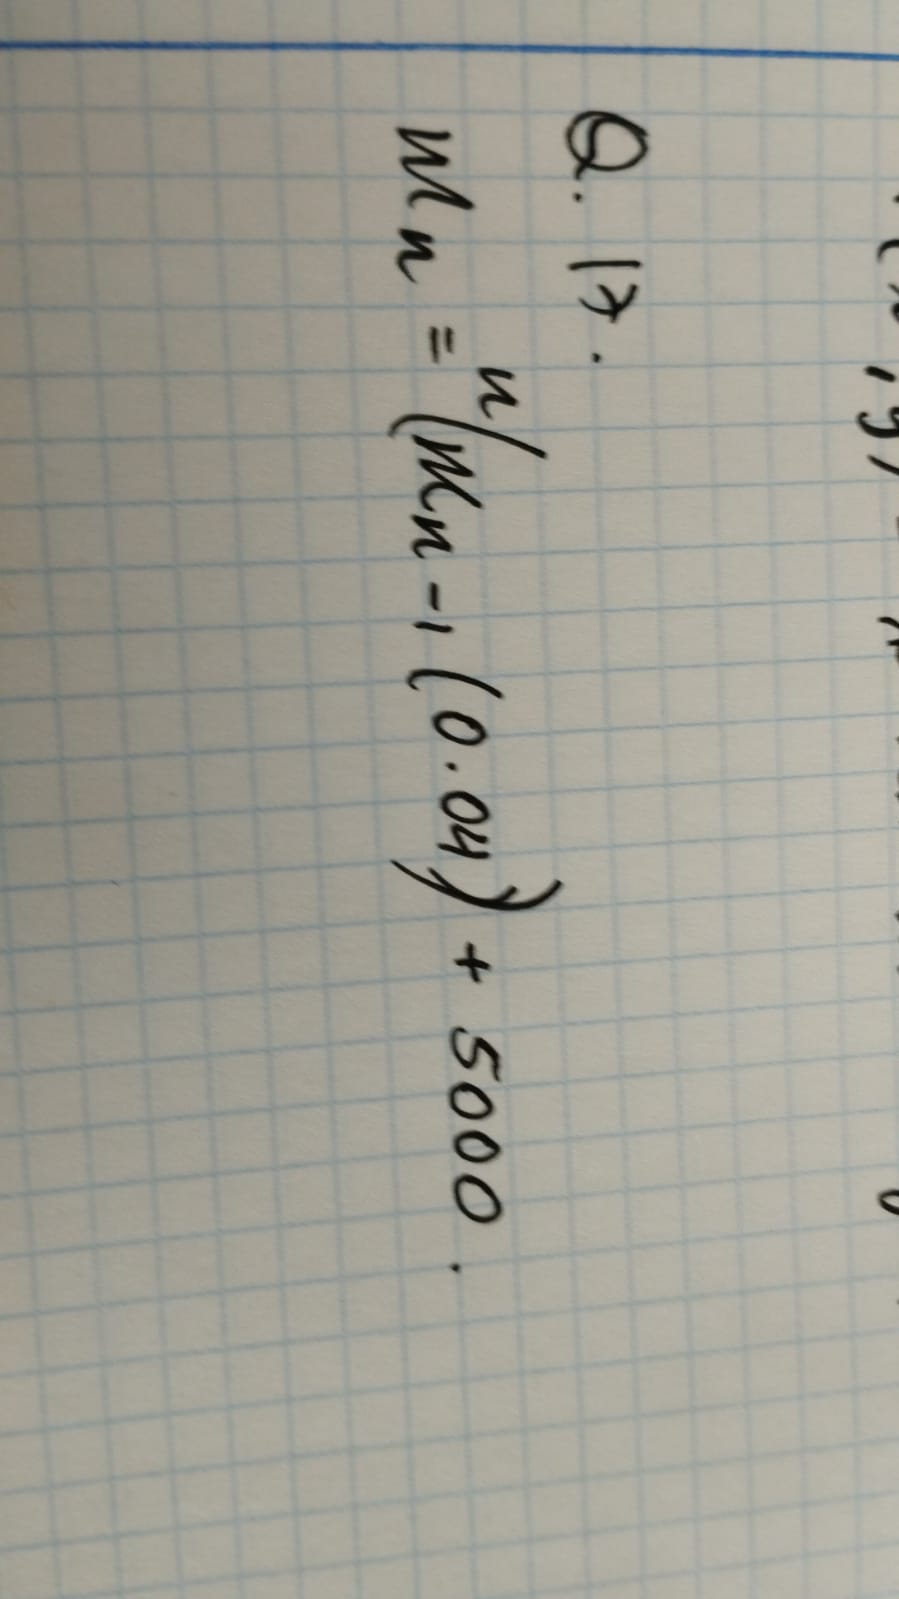 Q. 17.
Mn = n(Mn-1 (0.04)) + 5000.